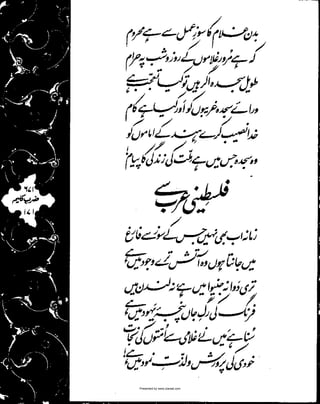 بدن غلام کا سوزِ عمل سے ہے محروم
کہ ہے مرور غلاموں کے روز و شب پہ حرام
طویل سجدہ اگر ہیں تو کیا تعجب ہے
ورائے سجدہ غریبوں کو اور کیا ہے کام
خدا نصیب کرے ہند کے اماموں کو
وہ سجدہ جس میں ہے ملّت کی زندگی کا پیام!
فلسطینی عرب سے
زمانہ اب بھی نہیں جس کے سوز سے فارغ
میں جانتا ہوں وہ آتش ترے وجود میں ہے
تری دوا نہ جنیوا میں ہے، نہ لندن میں
فرنگ کی رگِ جاں پنجۂ یہود میں ہے
سُنا ہے میں نے غلامی سے اُمتوں کی نجات
خودی کی پرورش و لذتِ نمود میں ہے!
٦٧١
ضربِ کلیم
١٧١
Presented by www.ziaraat.com